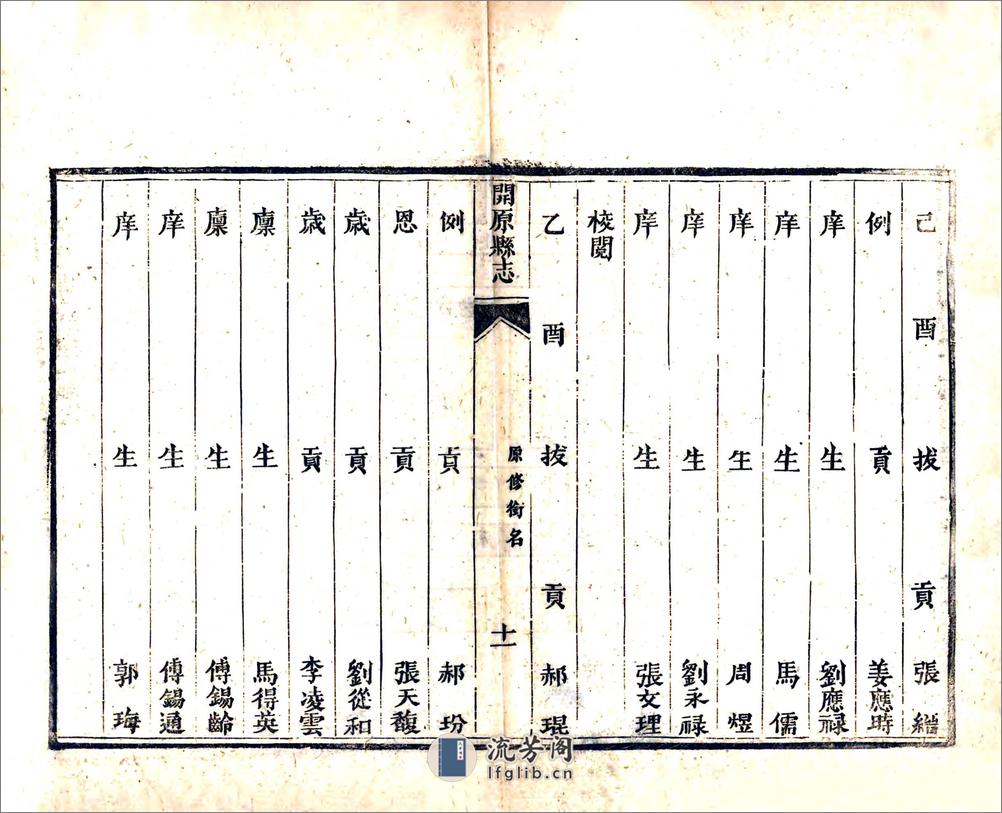 己酉拔貢張縉
例貢姜應時
庠生劉應祿
庠生馬儒
庠生周熤
庠生劉永祿
庠生張文理
校閱
乙酉拔貢郝琨
開原縣志
原修銜名
十一
例貢郝玢
恩貢張天馥
歲貢劉從和
歲貢李凌雲
廩生馬得英
廩生傅錫齡
庠生傅錫通
庠生郭珻
流芳阁
lfglib.cn